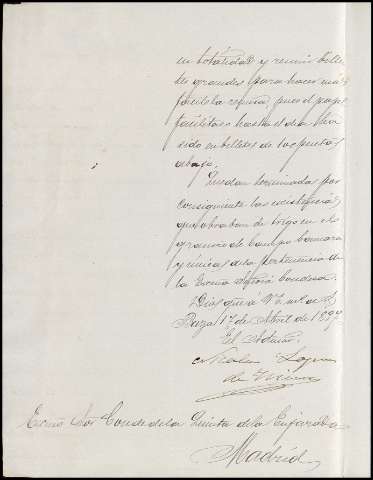 en totalidad y reunir bille
tes grandes para hacer mas
facil la remesa, pues el papel
facilitado hasta el dia ha
sido en billetes de 100 pesetas
abajo.
Quedan terminadas por
consiguiente las existencias
que obraban de trigo en el
granero de Campo Camara
y únicas de la pertenencia de
la Excma Señora Condesa.
Dios gue a V. E. m. a.
Baza 17 de Abril de 1897
El Admor.
Nicolas
de
Excmo Sor Conde de la Quinta de la Enjarada
Madrid